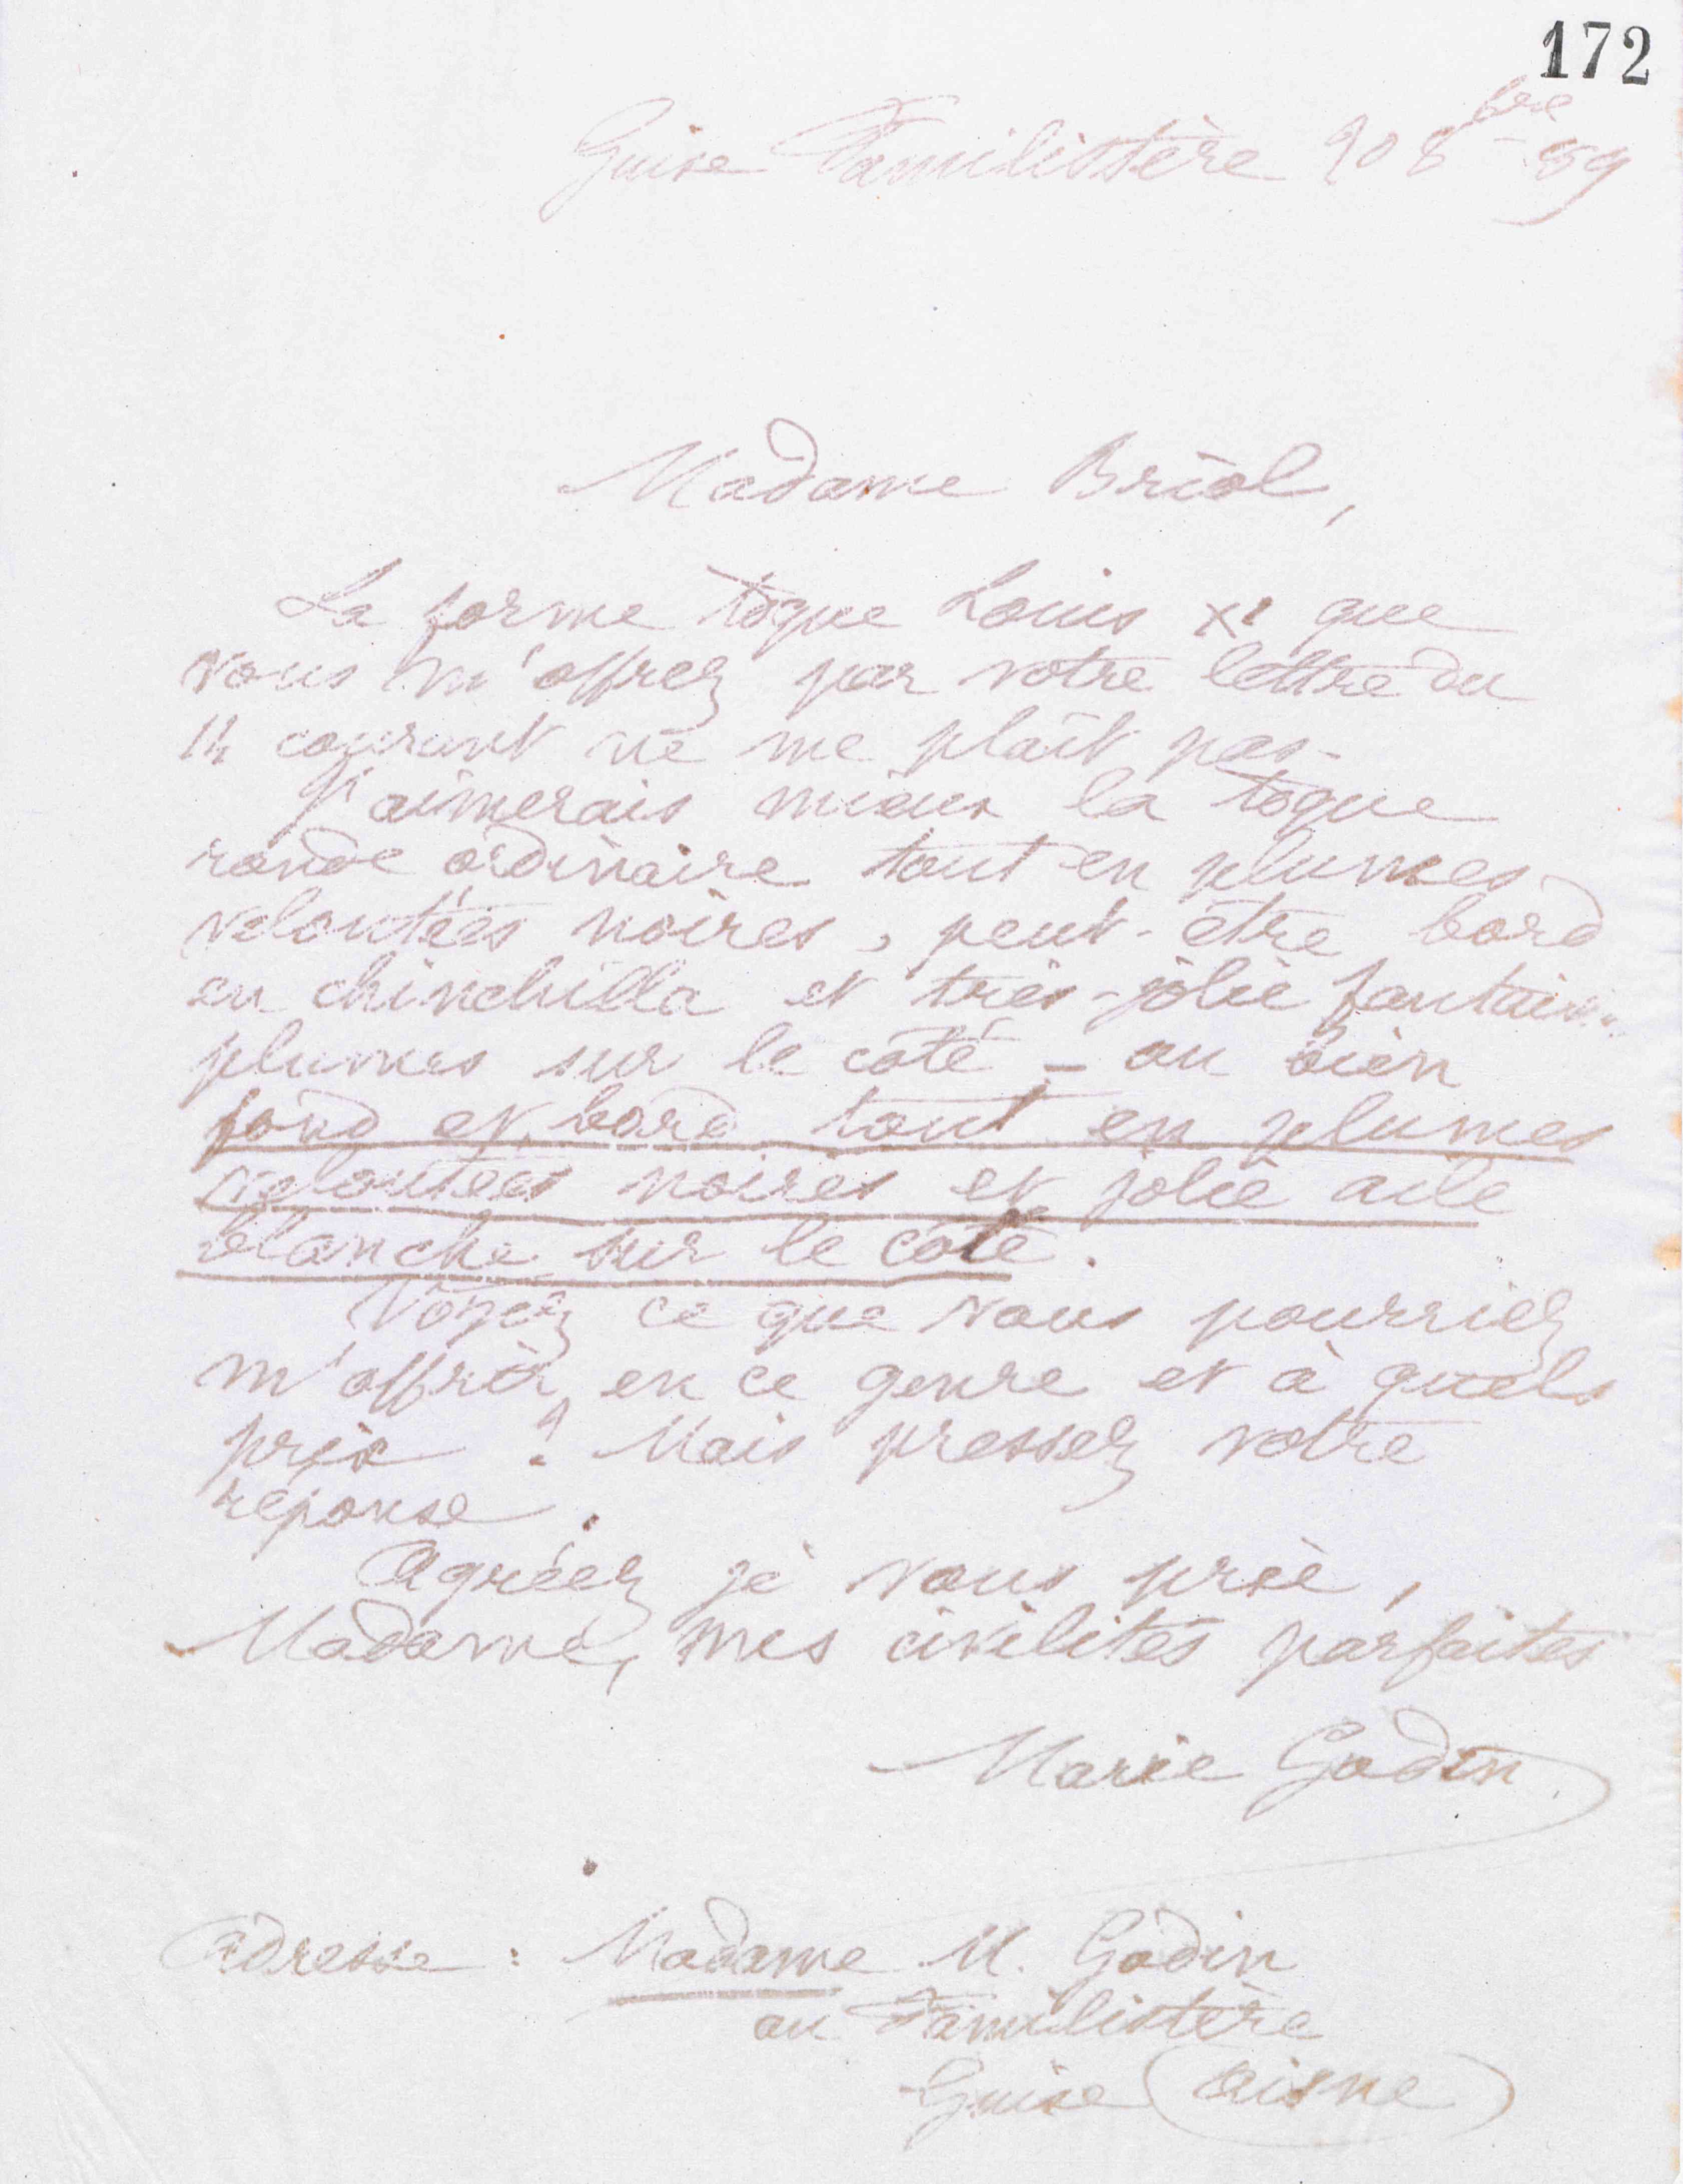 172
Guise Familistère 20 8bre - 89
Madame Briol,
La forme toque Louis XI que
vous m'offrez par votre lettre du
14 courant ne me plaît pas -
J'aimerais mieux la toque
ronde ordinaire tout en plumes
veloutées noires, peut-être bord
en chinchilla et très-jolie
plumes sur le côté - ou bien
fond et bord tout en plumes
veloutées noires et jolie aile
blanche sur le côté.
Voyez ce que vous pourriez
m'offrir en ce genre et à quels
prix ? Mais pressez votre
réponse.
Agréez je vous prie,
Madame, mes civilités parfaites
Marie Godin
Adresse : Madame M. Godin
au Familistère
Guise (Aisne)